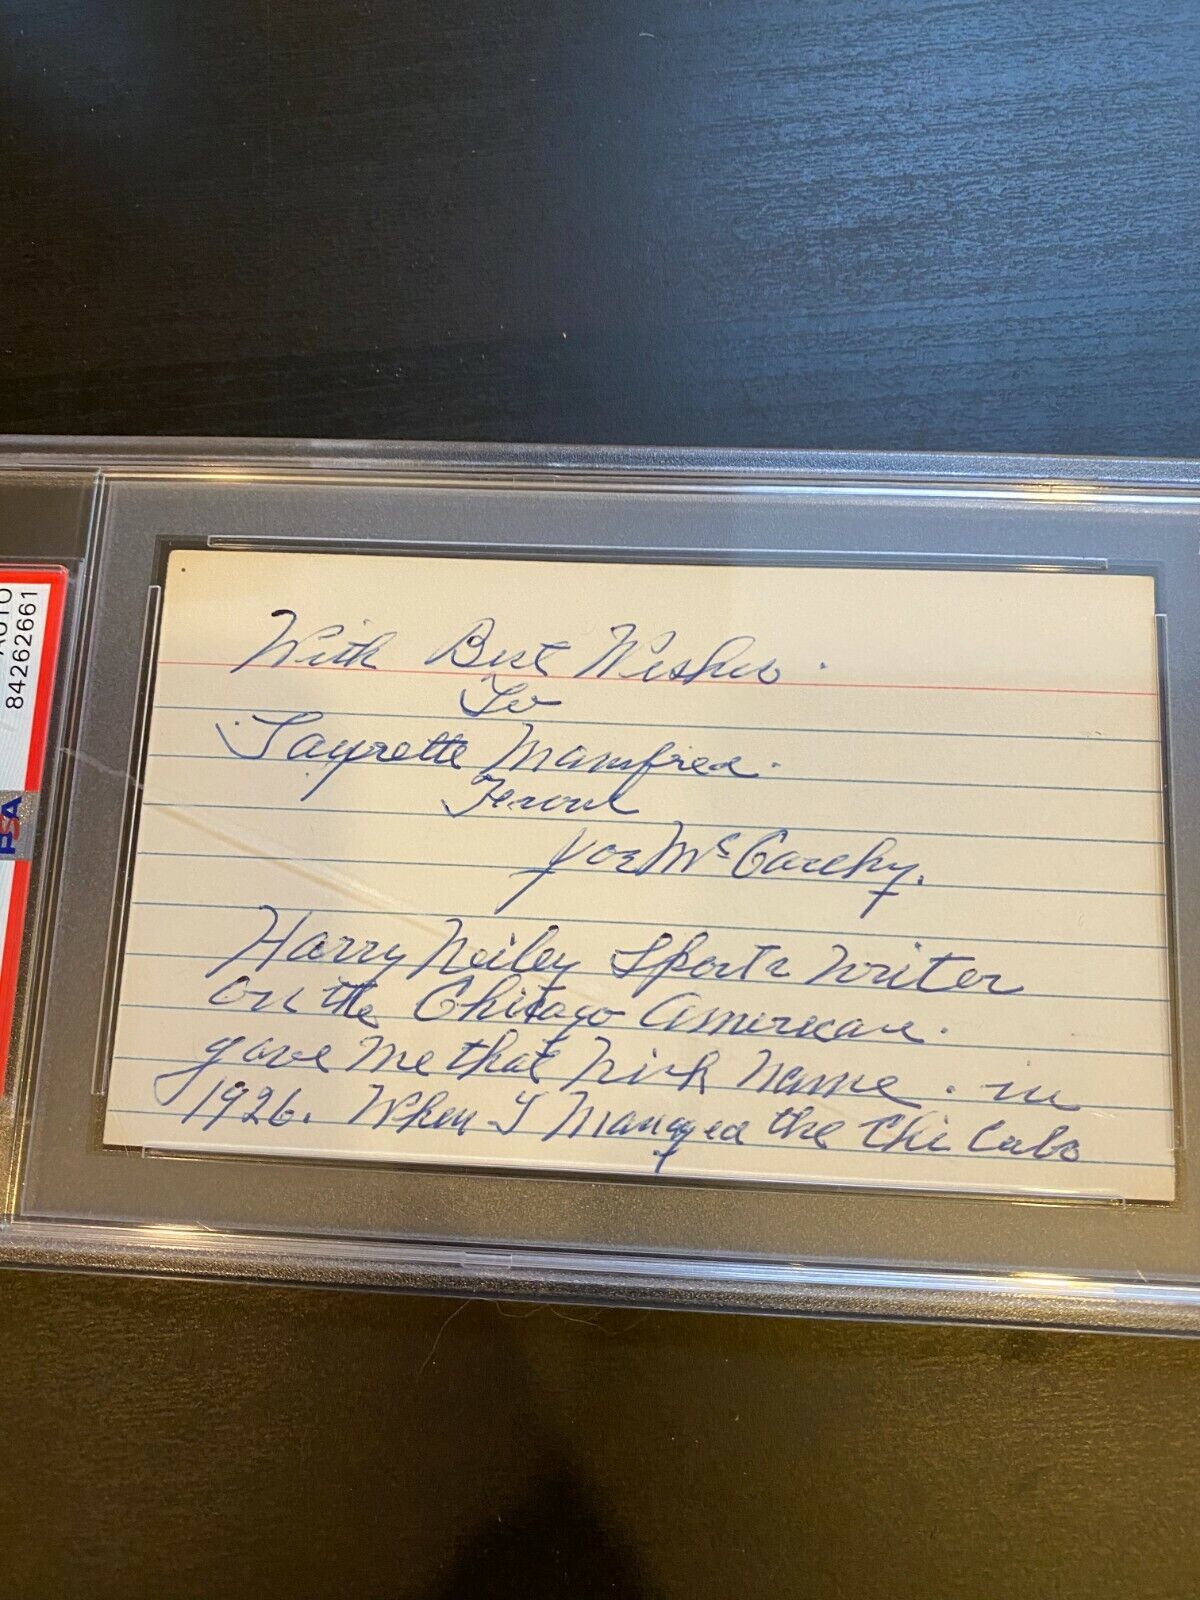 AUTO
84262661
PSA
With Best Wishes.
To
Manfred.
From
Joe McCarthy.
Harry Neiley Sports Writer
On the Chicago American.
gave me that Nick Name. in
1926. When I Managed the Chi Cubs